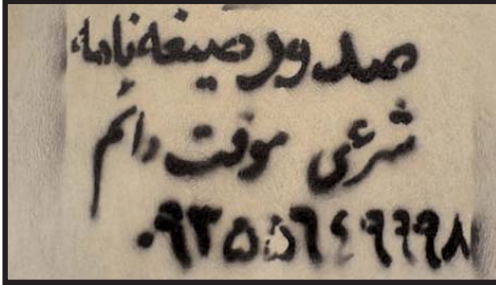 صدور صیغه نامه
شرعی موقت دائم
۰۹۳۵۵۶۴۹۶۹۸